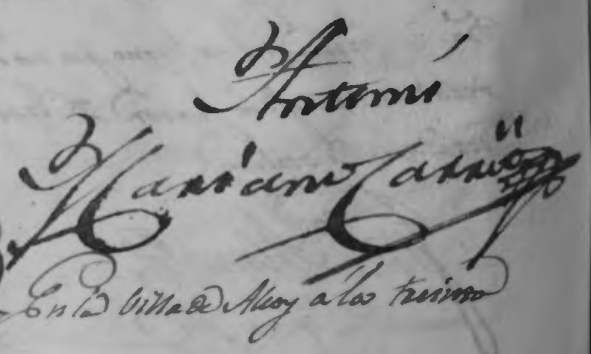 Antemi
Mariano Carrió
En la Villa de Alcoy a los treinta